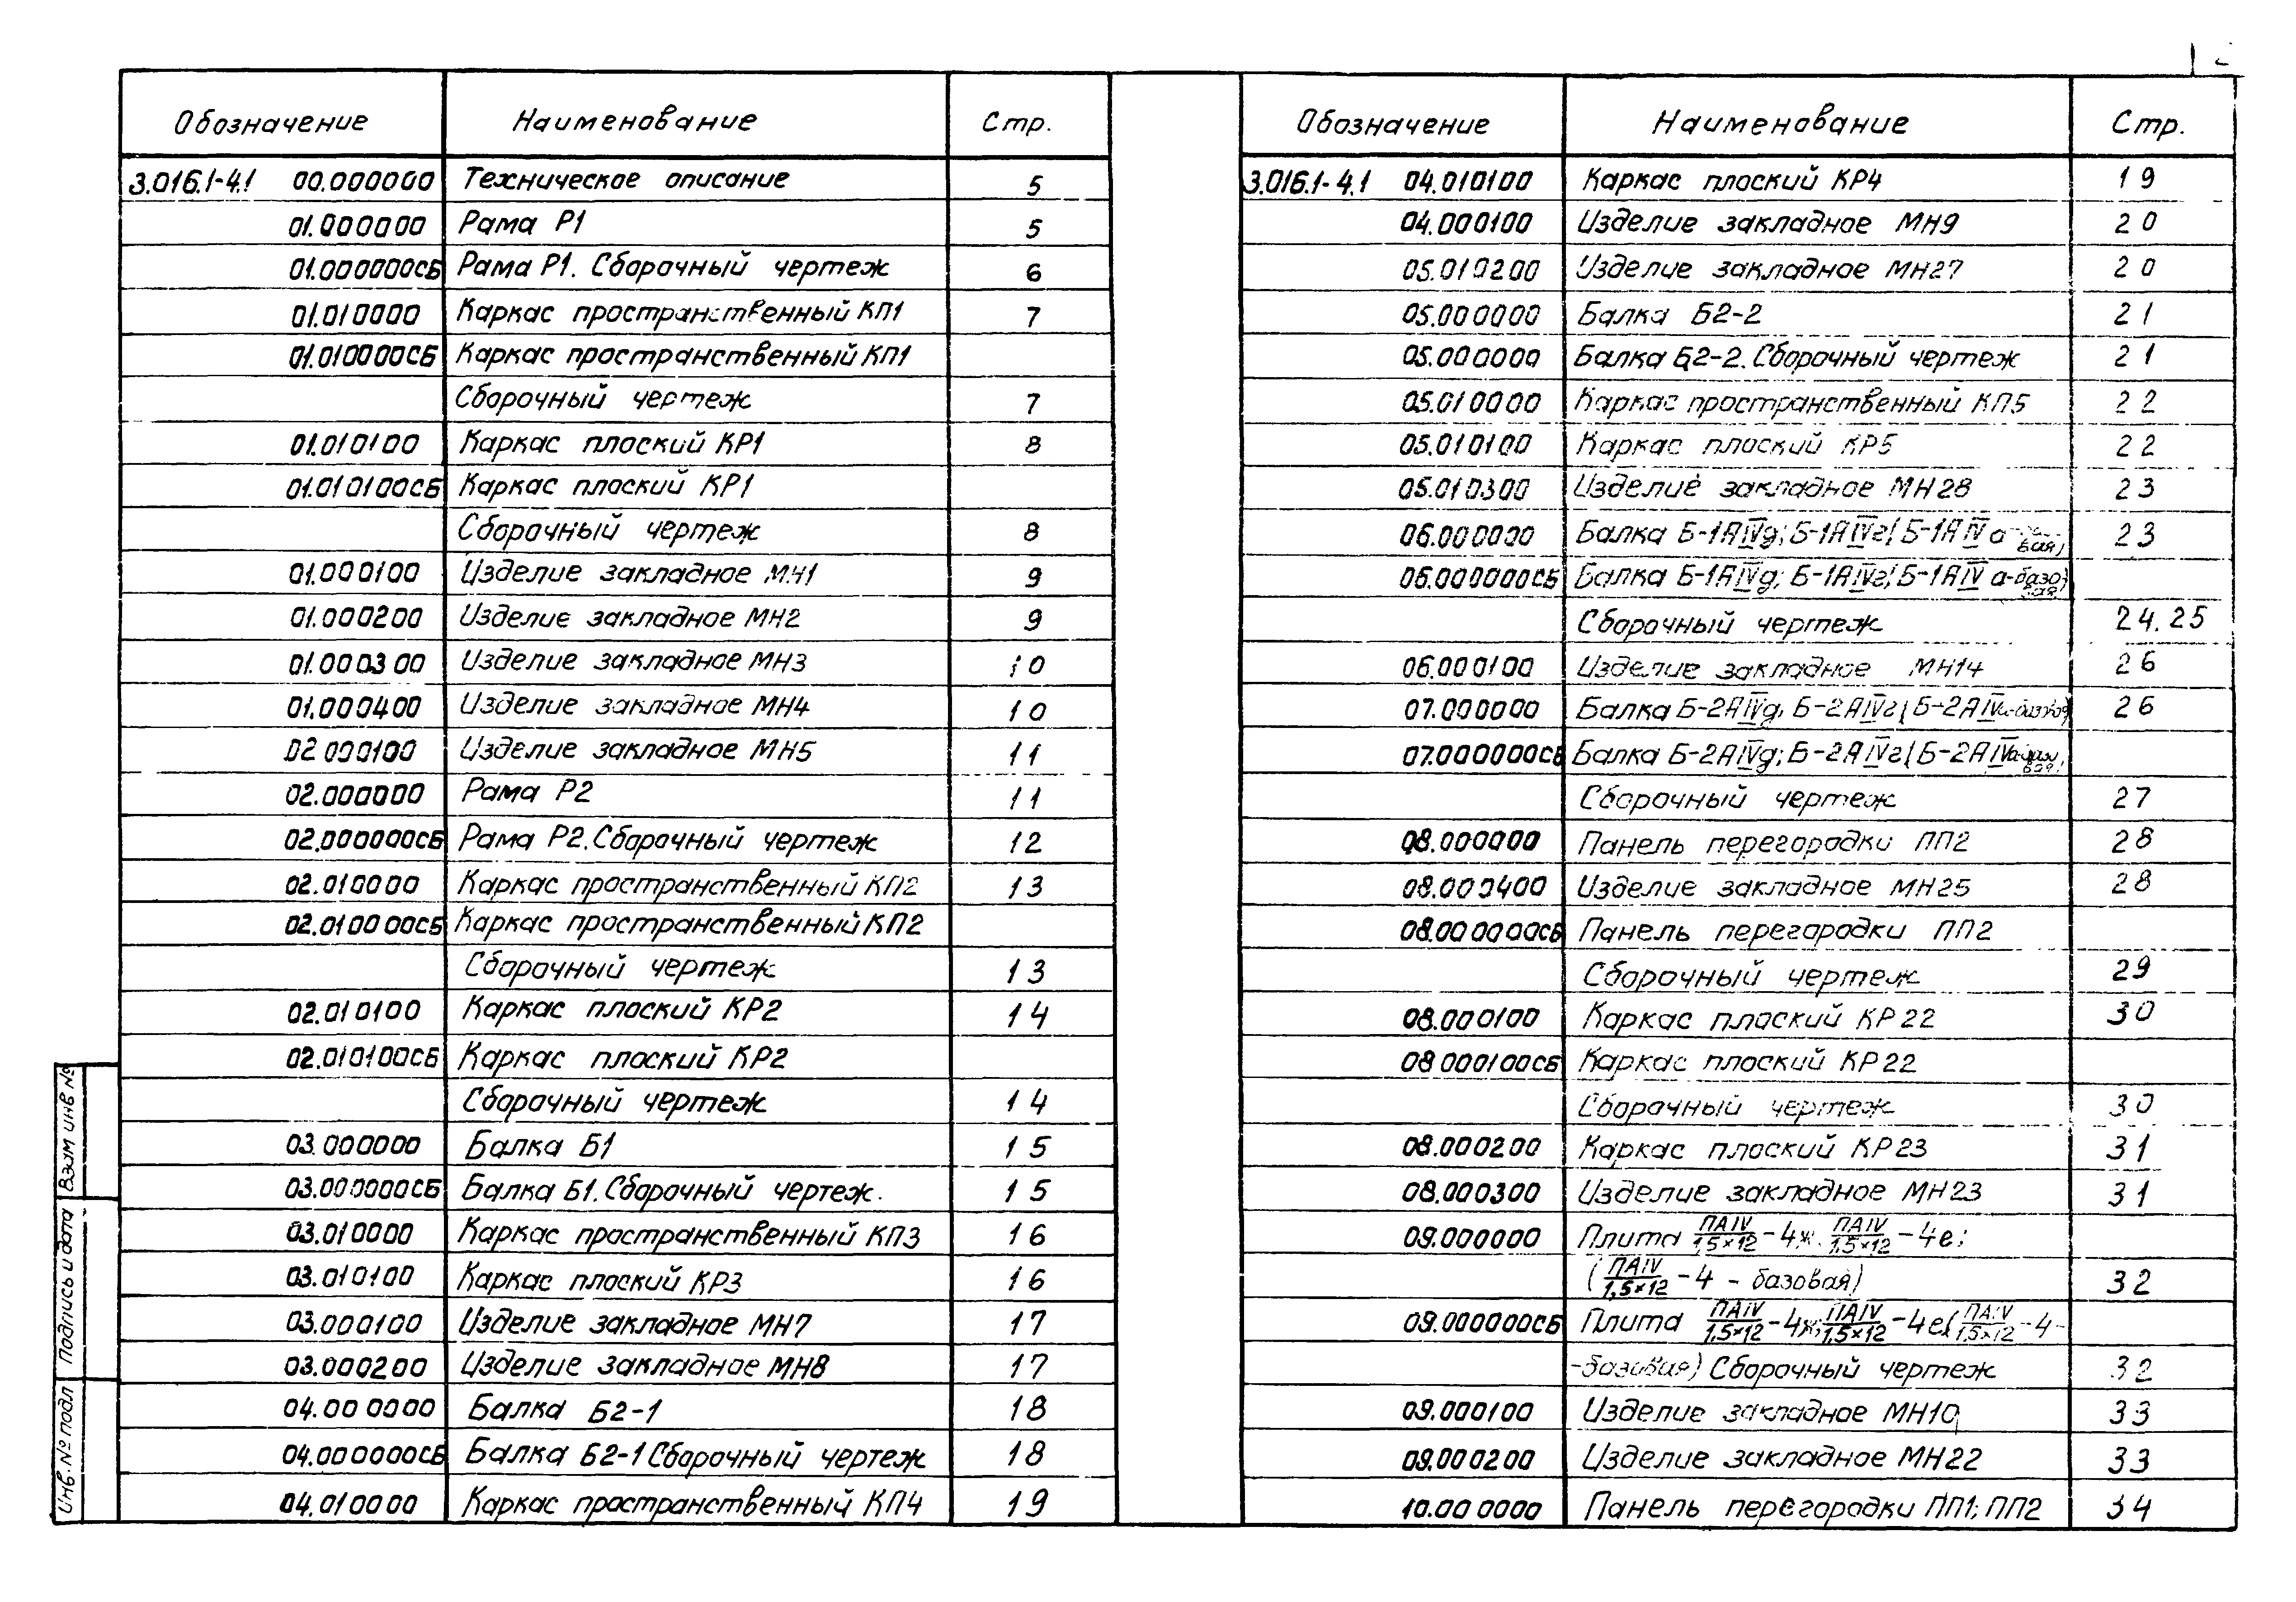 Обозначение Наименование Стр.
3.016.1-4.1 00.000000 Техническое описание 5
01.000000 Рама Р1 5
01.000000СБ Рама Р1. Сборочный чертеж 6
01.010000 Каркас пространственный КП1 7
01.010000СБ Каркас пространственный КП1
Сборочный чертеж 7
01.010100 Каркас плоский КР1 8
01.010100СБ Каркас плоский КР1
Сборочный чертеж 8
01.000100 Изделие закладное МН1 9
01.000200 Изделие закладное МН2 9
01.000300 Изделие закладное МН3 10
01.000400 Изделие закладное МН4 10
02 000100 Изделие закладное МН5 11
02.000000 Рама Р2 11
02.000000СБ Рама Р2. Сборочный чертеж 12
02.010000 Каркас пространственный КП2 13
02.010000СБ Каркас пространственный КП2
Сборочный чертеж 13
02.010100 Каркас плоский КР2 14
02.010100СБ Каркас плоский КР2
Сборочный чертеж 14
03.000000 Балка Б1 15
03.000000СБ Балка Б1. Сборочный чертеж. 15
03.010000 Каркас пространственный КП3 16
03.010100 Каркас плоский КР3 16
03.000100 Изделие закладное МН7 17
03.000200 Изделие закладное МН8 17
04.000000 Балка Б2-1 18
04.000000СБ Балка Б2-1 Сборочный чертеж 18
04.010000 Каркас пространственный КП4 19
Обозначение Наименование Стр.
3.016.1-4.1 04.010100 Каркас плоский КР4 19
04.000100 Изделие закладное МН9 20
05.010200 Изделие закладное МН27 20
05.000000 Балка Б2-2 21
05.000000 Балка Б2-2. Сборочный чертеж 21
05.010000 Каркас пространственный КП5 22
05.010100 Каркас плоский КР5 22
05.010300 Изделие закладное МН28 23
06.000000 Балка Б-1АIVд; Б-1АIVг( Б-1АIV а- 23
06.000000СБ Балка Б-1АIVд; Б-1АIVг( Б-1АIV а-базовая)
Сборочный чертеж 24.25
06.000100 Изделие закладное МН14 26
07.000000 Балка Б-2АIVд, Б-2АIVг( Б-2АIVа-базовая) 26
07.000000СБ Балка Б-2АIVд; Б-2АIVг( Б-2АIVа-
Сборочный чертеж 27
08.000000 Панель перегородки ПП2 28
08.000400 Изделие закладное МН25 28
08.000000СБ Панель перегородки ПП2
Сборочный чертеж 29
08.000100 Каркас плоский КР22 30
08 000100СБ Каркас плоский КР22
Сборочный чертеж 30
08.000200 Каркас плоский КР23 31
08.000300 Изделие закладное МН23 31
09.000000 Плита ПАIV/1,5×12 - 4ж. ПАIV/1,5×12 - 4е;
(ПАIV/1,5×12 - 4 - базовая) 32
09.000000СБ Плита ПАIV/1,5×12 - 4ж; ПАIV/1,5×12 - 4е( ПАIV/1,5×12 - 4-
-базовая) Сборочный чертеж 32
09.000100 Изделие закладное МН10 33
09.000200 Изделие закладное МН22 33
10.000000 Панель перегородки ПП1; ПП2 34
Взам инв №
Подпись и дата
Инв. № подл